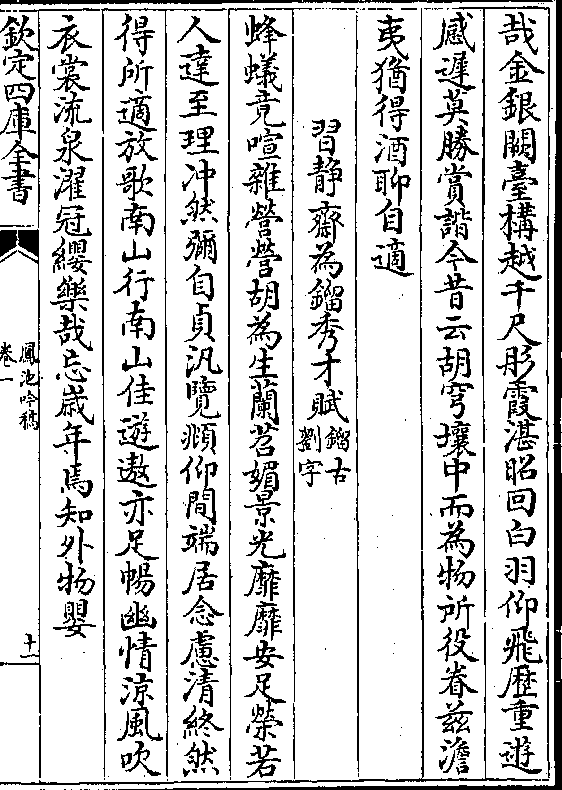 哉金銀闕臺構越千尺彤霞湛昭回白羽仰飛歷重遊
感遲莫勝賞諧今昔云胡穹壤中而為物所役眷兹澹
夷猶得酒聊自適
習静齋為鎦秀才賦鎦古劉字
蜂蟻竟喧雜營營胡為生蘭苕媚景光靡靡安足榮若
人達至理冲然彌自貞汎覽頫仰間端居念慮清終然
得所適放歌南山行南山佳遊遨亦足暢幽情涼風吹
衣裳流泉濯冠纓樂哉忘歲年焉知外物嬰
欽定四庫全書
鳳池吟稿
卷一
十一